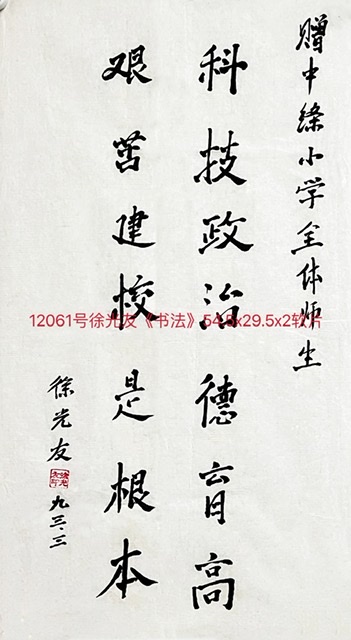 赠中条小学全体师生
科技政治德育高
艰苦建校是根本
徐光友
九三.三
12061号徐光友《书法》54.5x29.5x2软片